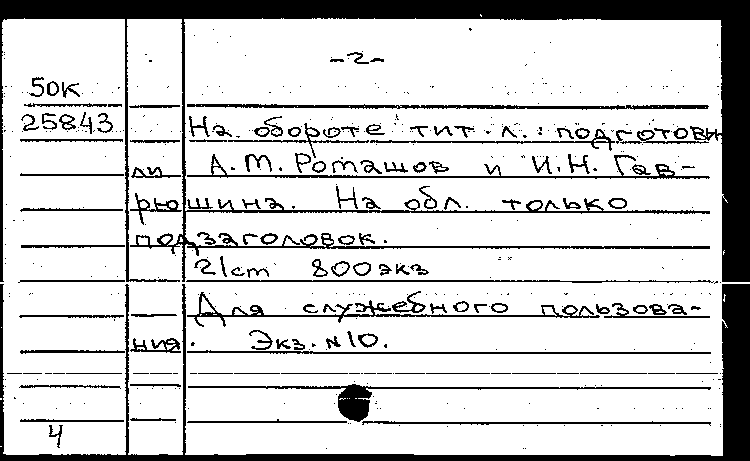 -2-
50К
25843 На обороте тит. л.: подготови
ли А.М. Ромашов и И.Н. Гав-
рюшина. На обл. только
подзаголовок.
21cm 800экз
Для служебного пользова-
ния. Экз. №10.
4